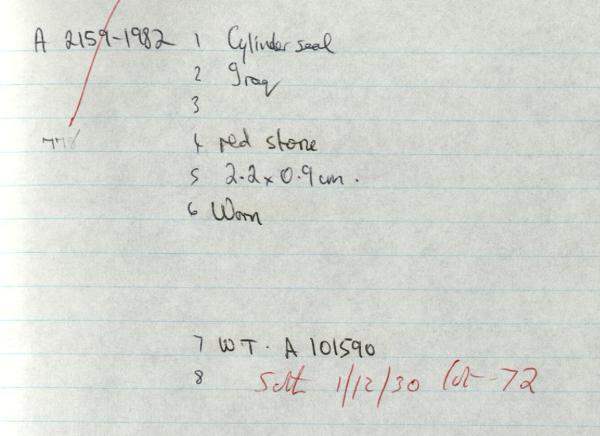 A 2159-1982 1 Cylinder seal
2 Iraq
3
4 red stone
5 2.2 x 0.9 cm.
6 Worn
7 WT. A 101590
8 Soth 1/12/30 lot 72